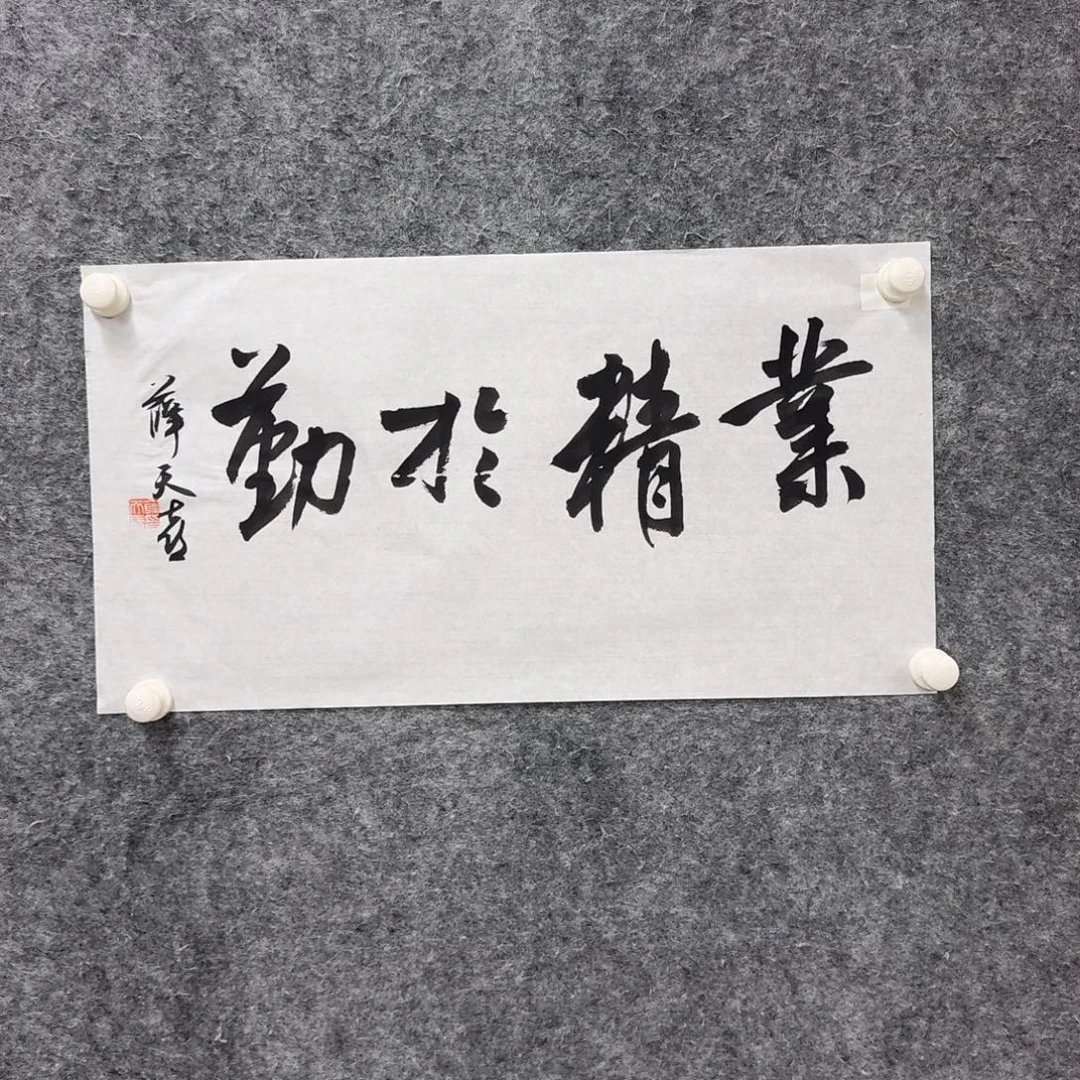 業精於勤
薛天喜